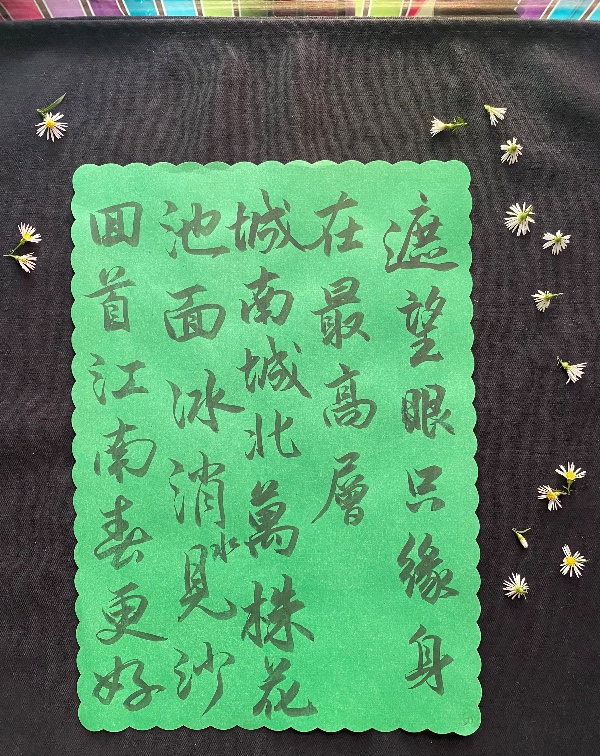 遮望眼只緣身
在最高層
城南城北萬株花
池面冰消水見沙
回首江南春更好